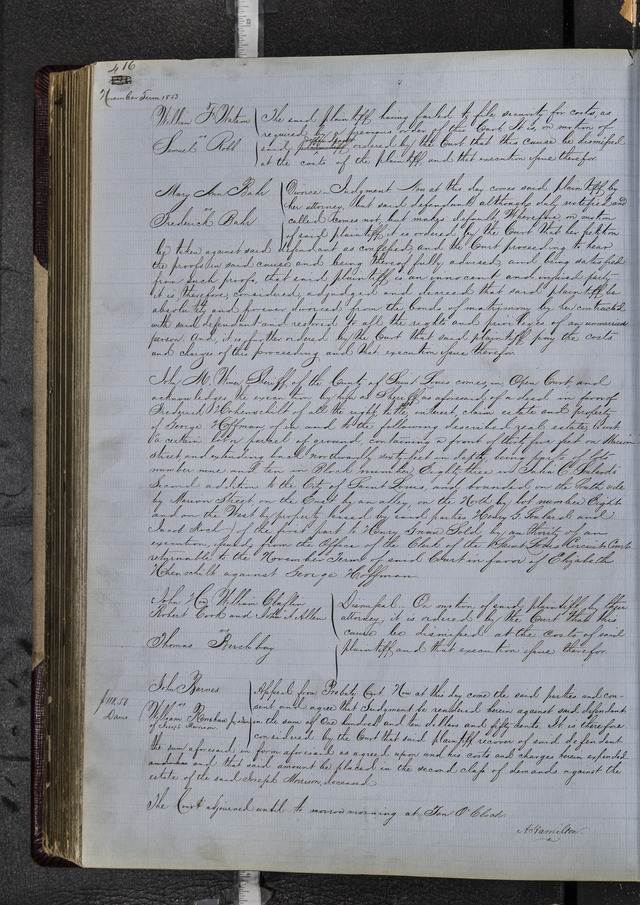 416
November Term 1853
William F. Watson
vs
Samuel Robb
The said plaintiff having failed to file security for costs, as
required by a previous order of this Court It is, on motion of
said, ordered by the Court that this cause be dismissed
at the costs of the plaintiff and that execution issue therefor.
Mary Ann Bahr
vs
Frederick Bahr
Divorce - Judgment Now at this day comes said plaintiff by
her attorney. And said defendant although duly notified and
called comes not, but makes default. Wherefore on motion
of said plaintiff, it is ordered by the Court that her petition
be taken against said defendant as confessed; and the Court proceeding to hear
the proofs in said cause and being thereof fully advised, and being satisfied
from such proofs, that said plaintiff is an innocent and injured party
it is, therefore, considered, adjudged and decreed that said plaintiff be
absolutely and forever divorced from the bonds of matrimony by her contracted
with said defendant and restored to all the rights and privileges of an unmarried
person. And, it is further ordered by the Court that said plaintiff pay the costs
and charges of this proceeding and that execution issue therefor.
John M. Wimer, Sheriff of the County of Saint Louis comes in Open Court, and
acknowledges the execution by him as Sheriff as aforesaid of a deed in favor of
Frederick Hohenschilt of all the right, title, interest, claim estate and property
of George Hoffman of in and to the following described real estate, to wit
a certain lot or parcel of ground, containing a front of thirty five feet on Marion
street, and extending back northwardly sixty feet in depth being parts of lots
number nine and ten in Block number Eighty three in Julia C. Soulards
Second addition to the City of Saint Louis, and bounded, on the South side
by Marion Street on the East by an alley, on the North by lot number Eight
and on the West by property leased by said parties Henry G. Soulard and
Jacob Koch) the first part to Henry Sold by authority of an
execution, issued, from the Office of the Clerk of the Saint Louis Circuit Court
returnable to the November Term, of said Court in favor of Elizabeth
Hohenschilt against George Hoffman
John How William Claflin
Robert Cook and John A Allen
vs
Thomas Hershbay
Dismissal - On motion of said plaintiffs by their
attorney, it is ordered by the Court that this
cause be dismissed at the costs of said
plaintiffs, and that execution issue therefor.
$110.50
Dam.
John Barnes
vs
William
of Joseph Morrison
Appeal from Probate Court Now at this day come the said parties and con-
sent and agree that Judgment be rendered herein against said defendant
in the sum of One hundred and ten dollars and fifty cents. It is therefore
considered by the Court that said plaintiff recover of said defendant
the sum aforesaid, in form aforesaid as agreed upon and his costs and charges herein expended
and that said amount be placed in the second class of demands against the
estate of the said Joseph Morrison, deceased
The Court adjourned until to morrow morning at Ten O'Clock
A Hamilton